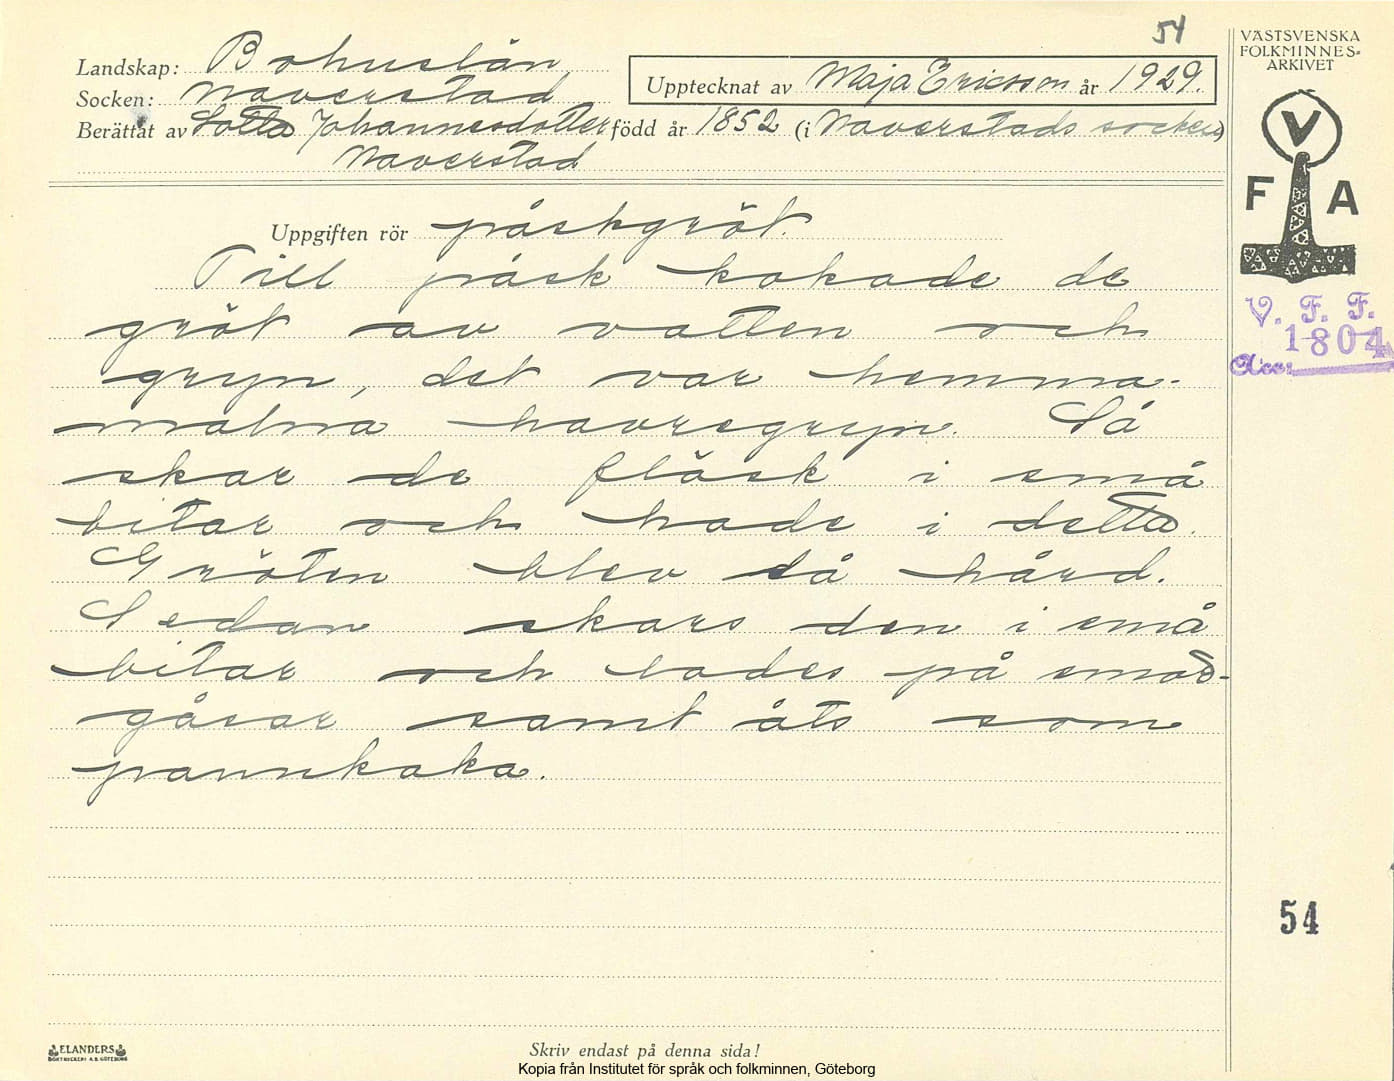 54
VÄSTSVENSKA
FOLKMINNES=
ARKIVET
Landskap: Bohuslän
Upptecknat av Maja Ericsson år 1929.
Socken: Naverstad
Berättat av Lotta Johannesdotter född år 1852 (i Naverstads socken)
Naverstad
V
F A
Uppgiften rör påskgröt.
Till påsk kokade de
gröt av vatten och
gryn, det var hemma-
malna havregryn. Så
skar de fläsk i små
bitar och hade i detta.
Gröten blev då hård.
Sedan skars den i små
bitar och lades på smör-
gåsar samt åts som
pannkaka.
V. F. F.
1804
Acc:
54
ELANDERS
BOKTRYCKERI A.B. GÖTEBORG
Skriv endast på denna sida!
Kopia från Institutet för språk och folkminnen, Göteborg